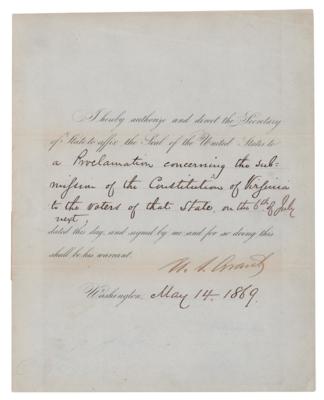 I hereby authorize and direct the Secretary
of State to affix the Seal of the United States to
a Proclamation concerning the sub-
mission of the Constitution of Virginia
to the voters of that State, on the 6th of July
next,
dated this day, and signed by me and for so doing this
shall be his warrant.
U. S. Grant
Washington, May 14. 1869.